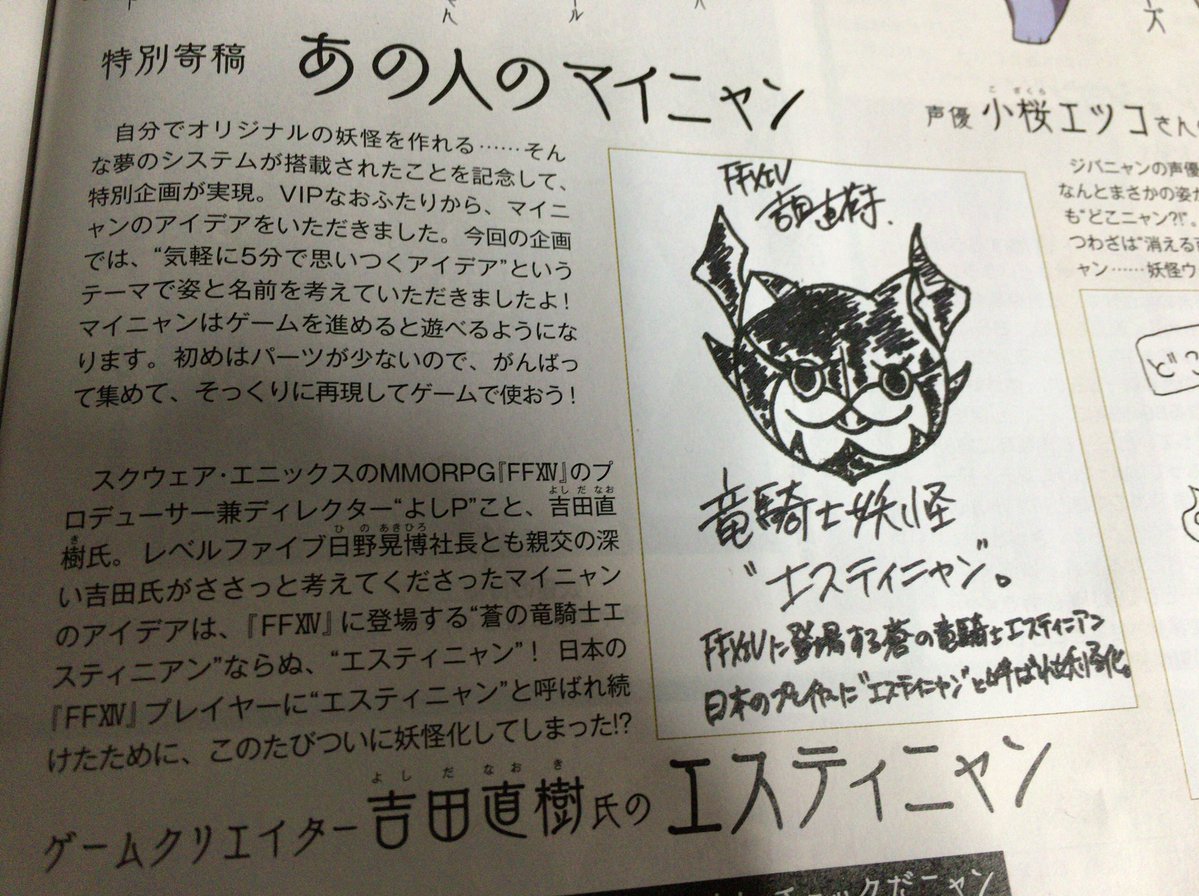 特別寄稿 あの人のマイニャン
自分でオリジナルの妖怪を作れる……そん
な夢のシステムが搭載されたことを記念して、
特別企画が実現。VIPなおふたりから、マイニ
ャンのアイデアをいただきました。今回の企画
では、“気軽に5分で思いつくアイデア”という
テーマで姿と名前を考えていただきましたよ!
マイニャンはゲームを進めると遊べるようにな
ります。初めはパーツが少ないので、がんばっ
て集めて、そっくりに再現してゲームで使おう!
スクウェア・エニックスのMMORPG『FFXIV』のプ
ロデューサー兼ディレクター“よしP”こと、吉田直
よし だ なお
樹氏。レベルファイブ日野晃博社長とも親交の深
き ひ の あきひろ
い吉田氏がささっと考えてくださったマイニャン
のアイデアは、『FFXIV』に登場する“蒼の竜騎士エ
スティニアン”ならぬ、“エスティニャン”! 日本の
『FFXIV』プレイヤーに“エスティニャン”と呼ばれ続
けたために、このたびついに妖怪化してしまった!?
よし だ なお き
ゲームクリエイター吉田直樹氏の エスティニャン
FFXIV
吉田直樹.
竜騎士妖怪
“エスティニャン”。
FFXIVに登場する蒼の竜騎士エスティニアン
日本のプレイヤーに“エスティニャン”と呼ばれ妖怪化。
こ ざくら
声優 小桜エツコさん
ジバニャンの声優
なんとまさかの姿
も“どこニャン?!”。
つわざは“消える
ャン……妖怪ウ
どこ
ックだニャン